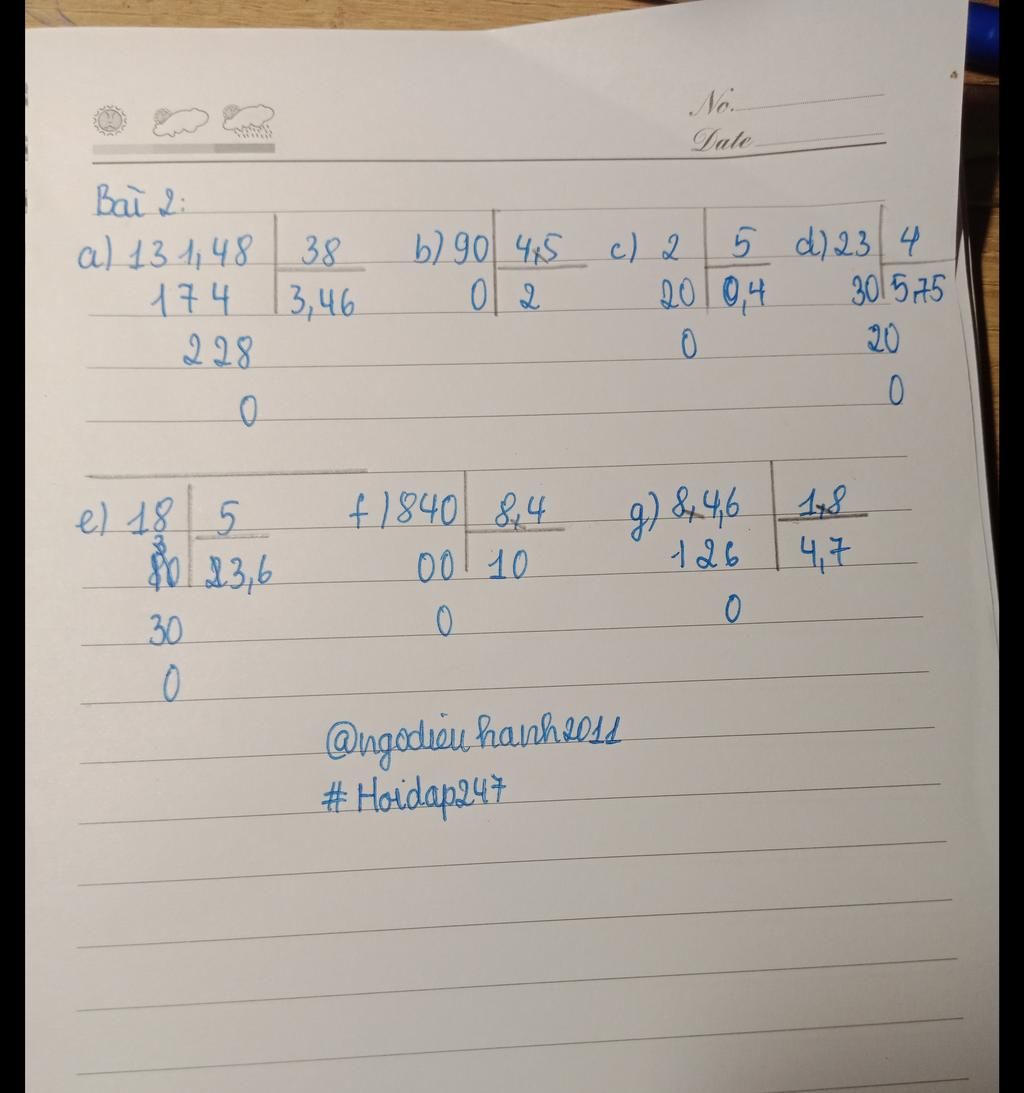 No.
Date
Bài 2:
a) 131,48 38 b) 90 4,5 c) 2 5 d) 23 4
174 3,46 0 2 20 0,4 30 5,75
228 0 20
0 0
e) 18 5 f) 840 8,4 g) 8,4,6 1,8
30 23,6 00 10 126 4,7
30 0 0
0
@ngodieuhanh2011
#Hoidap247